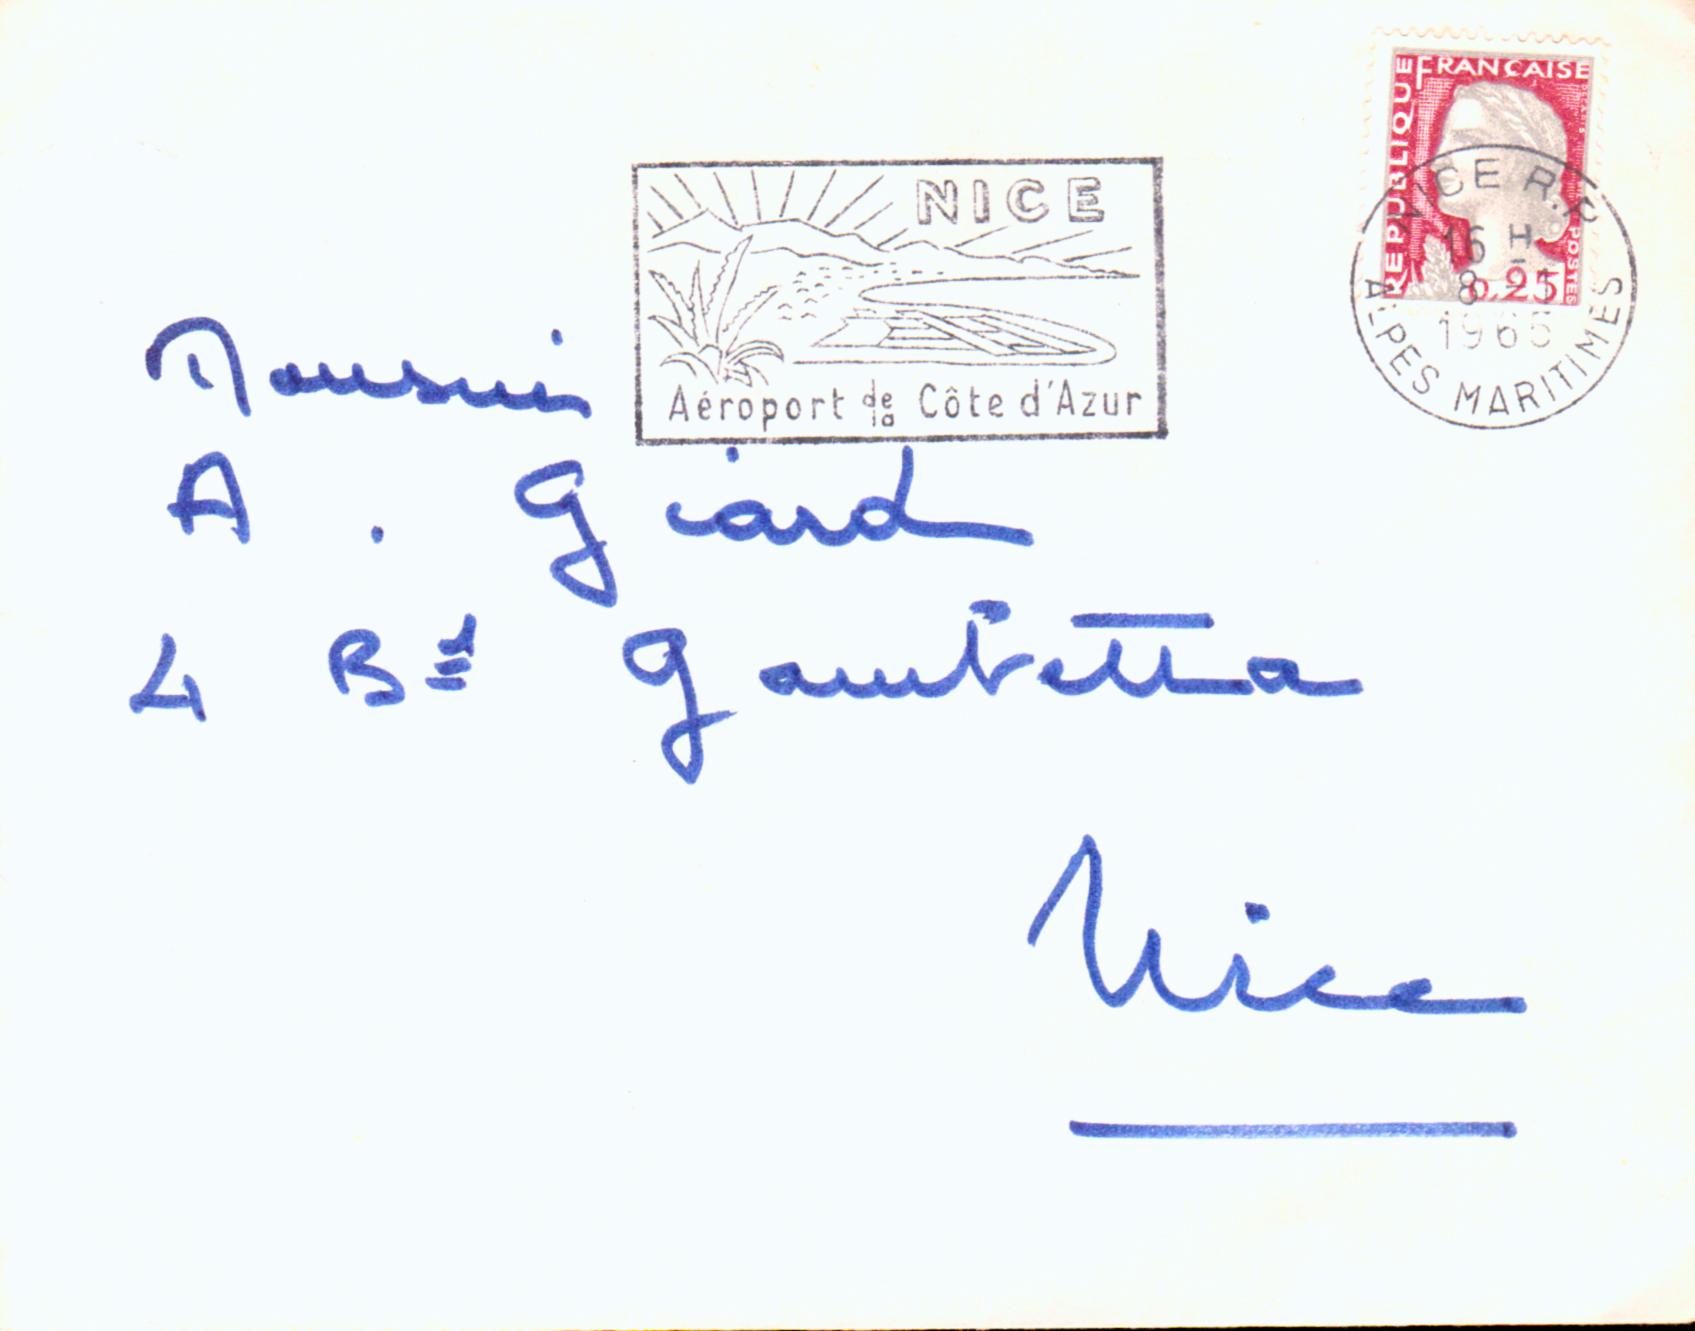 RÉPUBLIQUE FRANÇAISE
POSTES
0,25
NICE R.P.
16 H
8 - 1
1965
ALPES MARITIMES
NICE
Aéroport de la Côte d'Azur
Monsieur
A. Giard
4 Bd Gambetta
Nice